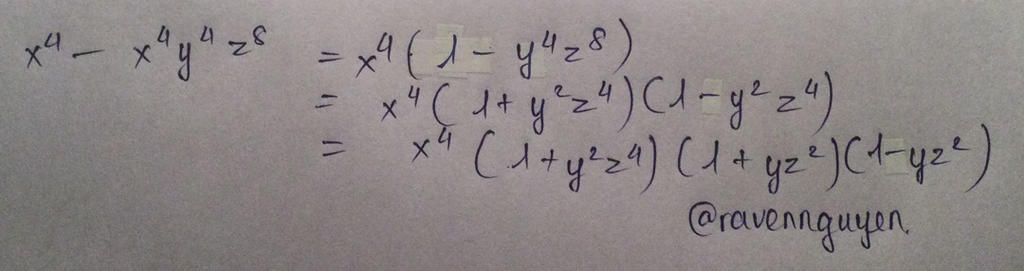 x⁴ − x⁴y⁴z⁸ = x⁴(1 − y⁴z⁸)
= x⁴(1 + y²z⁴)(1 − y²z⁴)
= x⁴(1 + y²z⁴)(1 + yz²)(1 − yz²)
@ravennguyen.